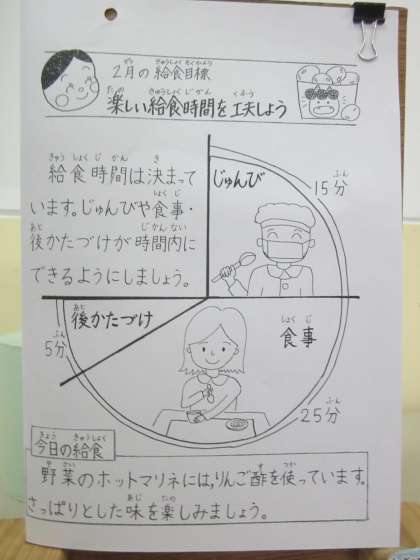 2月の給食目標
楽しい給食時間を工夫しよう
給食時間は決まって
います。じゅんびや食事・
後かたづけが時間内に
できるようにしましょう。
じゅんび
15分
食事
25分
後かたづけ
5分
今日の給食
野菜のホットマリネには,りんご酢を使っています。
さっぱりとした味を楽しみましょう。